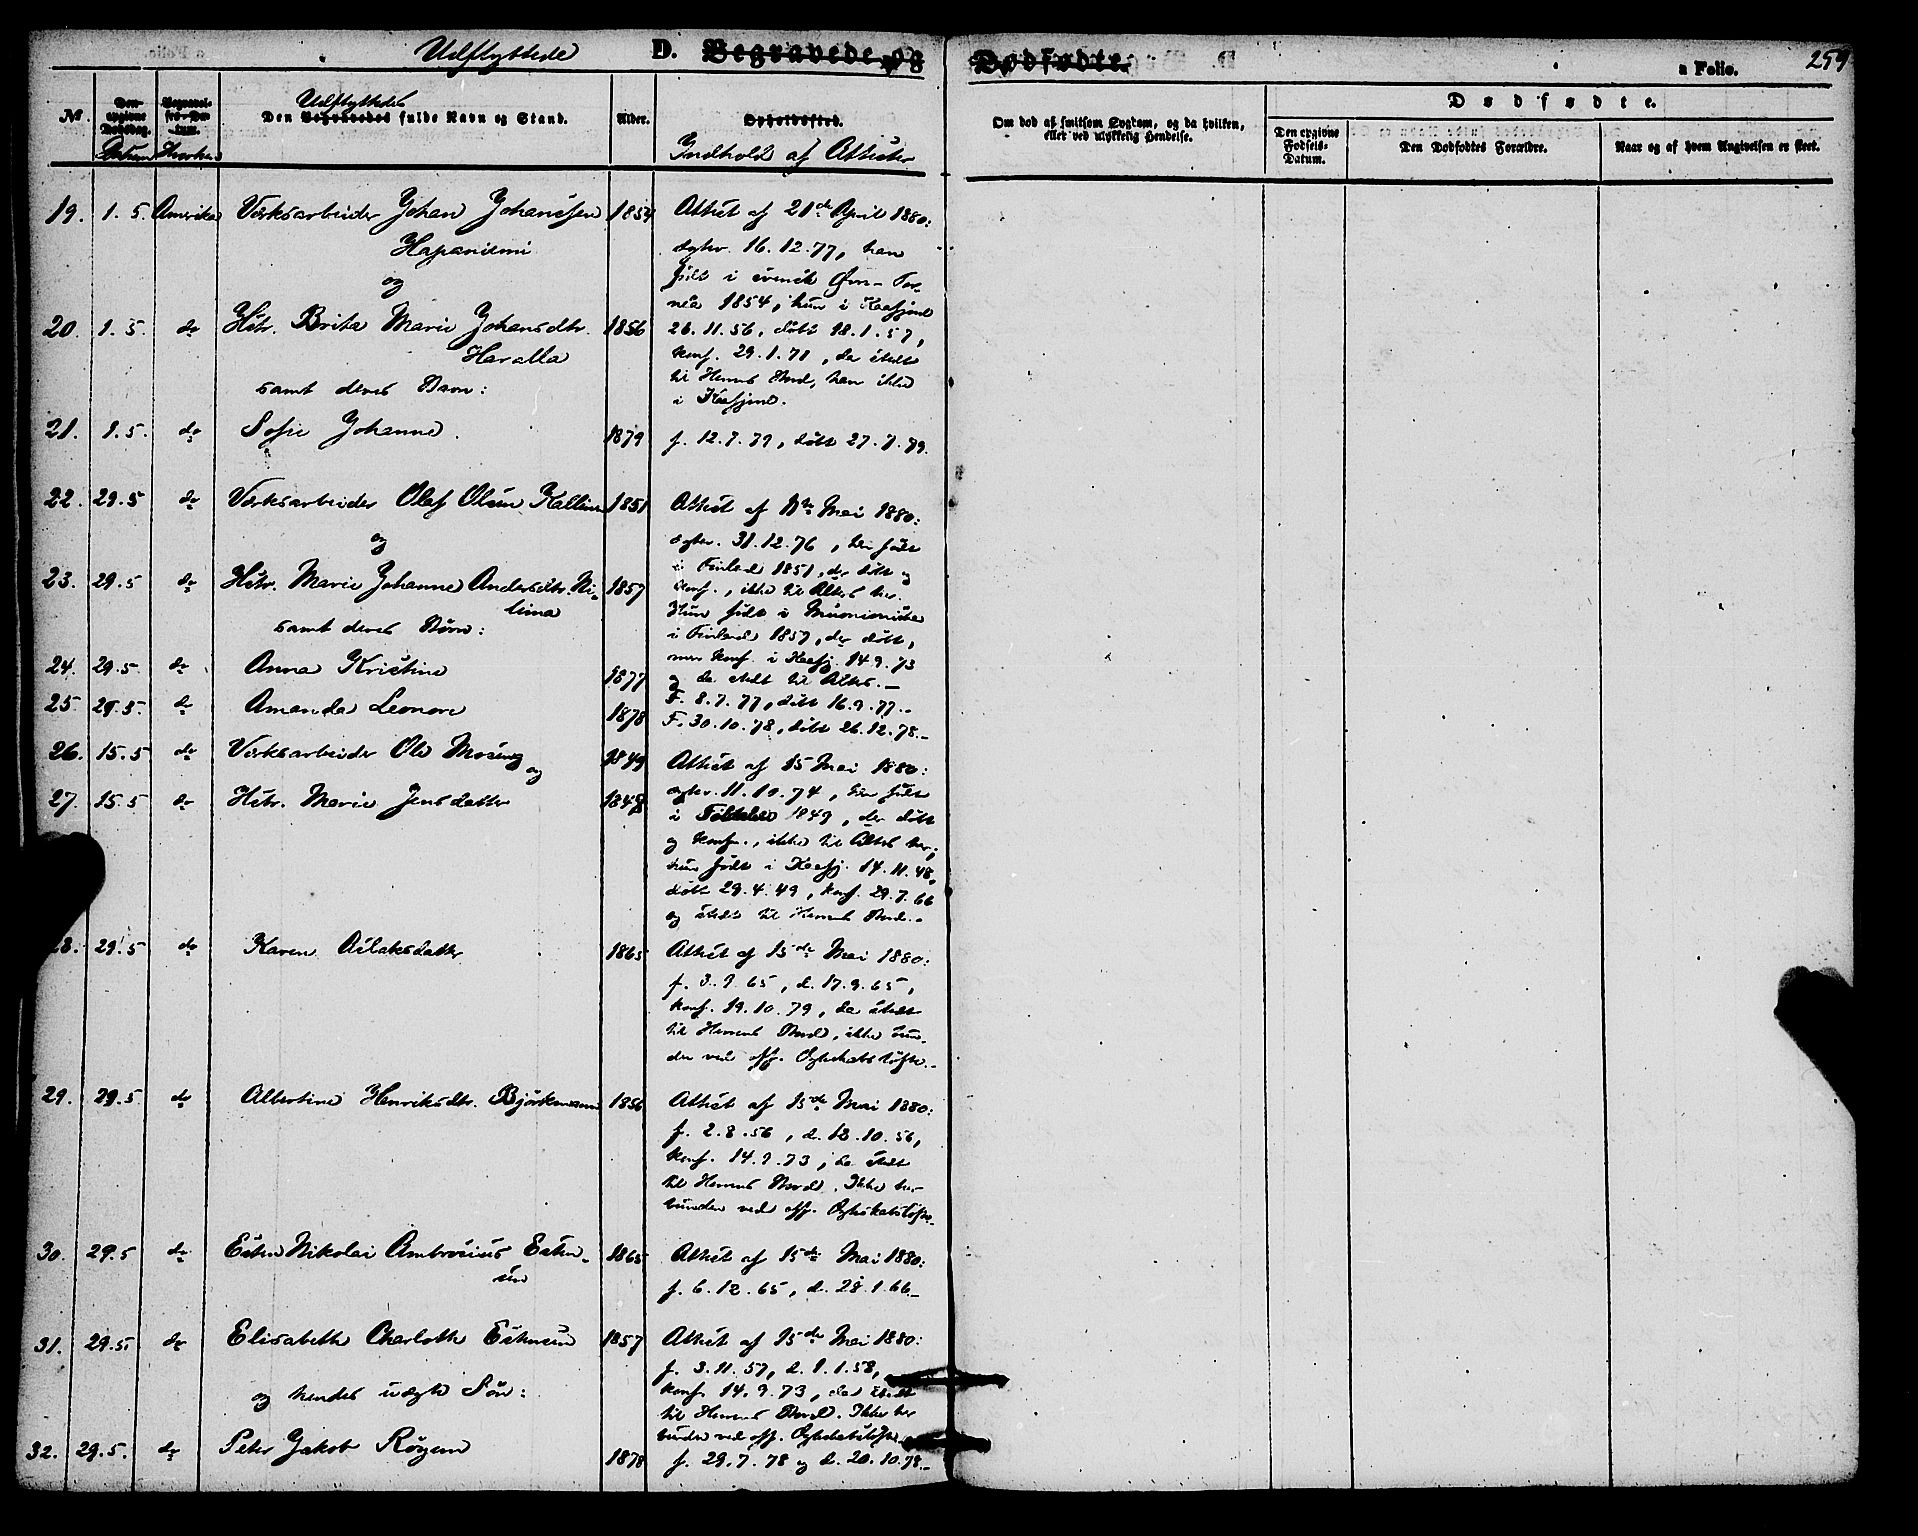 Udflyttede D. Begravede og Dødfødte.
a Folio. 259
No. Den opgivne Dødsdag. Datum Begravelses-Datum. Hvorhen Udflyttedes Den Begravedes fulde Navn og Stand. Alder. Opholdssted. Indhold af Attester
Om død af smitsom Sygdom, og da hvilken, eller ved ulykkelig Hendelse.
Dødfødte.
Den opgivne Fødsels-Datum. Den Dødfødtes Forældre. Naar og af hvem Angivelsen er skeet.
19. 1.5. Amerika Værksarbeider Johan Johanssen 1854 Attest af 21de April 1880:
Haparniemi
og
gtev. 16.12.77, han
født i svensk Øvre-Tor-
neå 1854, hun i Kaafjord
20. 1.5. do Hstr. Brita Marie Johansdtr. 1856 26.11.56, døbt 18.1.57,
Haralla
konf. 29.1.71, da stedt
samt deres Barn:
til Herrens Bord, han ikke
i Kaafjord.
21. 1.5. do Sofie Johanne. 1879 f. 12.7.79, døbt 27.7.79.
22. 29.5 do Værksarbeider Olaf Olsen Kallinen 1851 Attest af Mai 1880:
og
gtev. 31.12.76, han født
i Finland 1851, der døbt og
23. 29.5 do Hstr. Marie Johanne Andersdtr. Ni- 1857 konf., ikke til Alters her.
lima
Hun født i Muonioniska
samt deres Børn:
i Finland 1857, der døbt,
men konf. i Kaafj. 14.9.73
24. 29.5 do Anna Kristine 1877 og da stedt til Alters.
25. 29.5. do Amanda Leonore 1878 F. 8.7.77, døbt 16.9.77.
F. 30.10.78, døbt 26.12.78.
26. 15.5 do Værksarbeider Ole Mosling og 1849 Attest af 15 Mai 1880:
27. 15.5 do Hstr. Marie Jensdatter 1848 gtev. 11.10.74, han født
i 1849, der døbt
og konf., ikke til Alters her;
hun født i Kaafj. 14.11.48,
døbt 29.4.49, konf. 29.7.66
og stedt til Herrens Bord.
28. 29.5 do Karen Aslaksdatter 1865 Attest af 15de Mai 1880:
f. 3.9.65, d. 17.9.65,
konf. 19.10.79, da stedt
til Herrens Bord, ikke bun-
den ved off. Ægteskabsløfte.
29. 29.5 do Albertine Henriksdtr. Björkmann 1856 Attest af 15de Mai 1880:
f. 2.8.56, d. 12.10.56,
konf. 14.9.73, da stedt
til Herrens Bord. Ikke her
bunden ved off. Ægteskabsløfte.
30. 29.5 do Esten Nikolai Ambrosius Esten- 1865 Attest af 15de Mai 1880:
sen
f. 6.12.65, d. 28.1.66.
31. 29.5. do Elisabeth Charlotte Estensen 1857 Attest af 15de Mai 1880:
f. 3.11.57, d. 1.1.58,
og hendes uægte Søn:
konf. 14.9.73, da stedt
til Herrens Bord. Ikke her
bunden ved off. Ægteskabsløfte.
32. 29.5. do Peter Jakob 1878 f. 29.7.78 og d. 20.10.78.